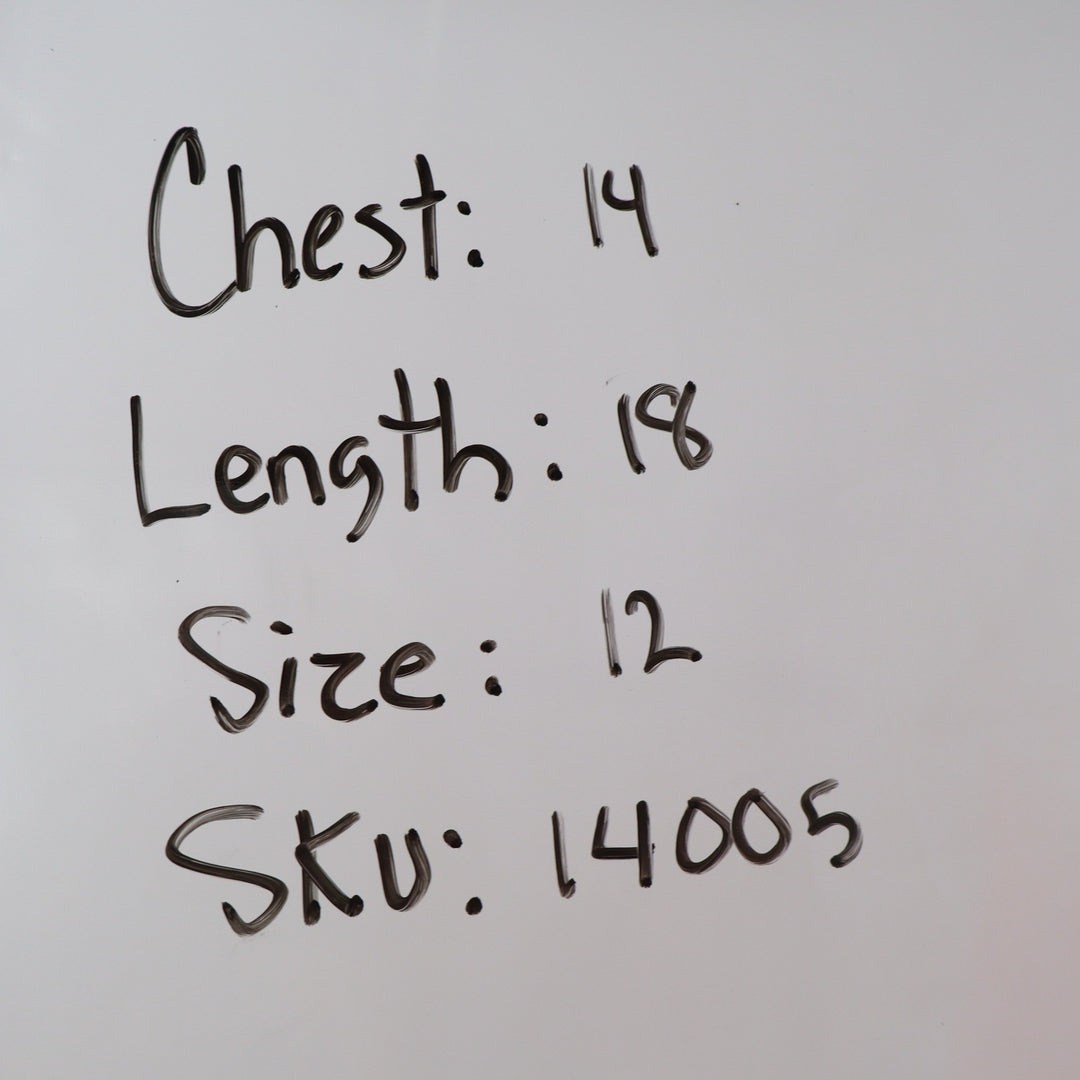 Chest: 14
Length: 18
Size: 12
SKU: 14005